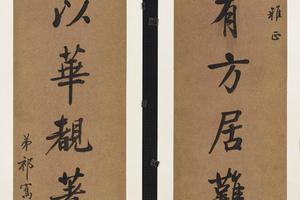 雅正
有方居難
以華觀著
弟祁寯